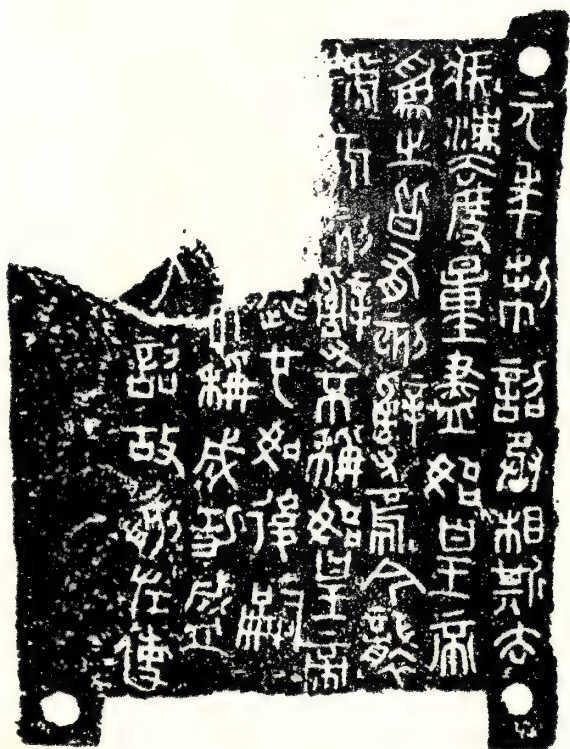 元年制詔丞相斯去
疾灋度量盡始皇帝
爲之皆有刻辭焉今襲
號而刻辭不稱始皇帝
遠也如後嗣
不稱成功盛
詔故刻左使